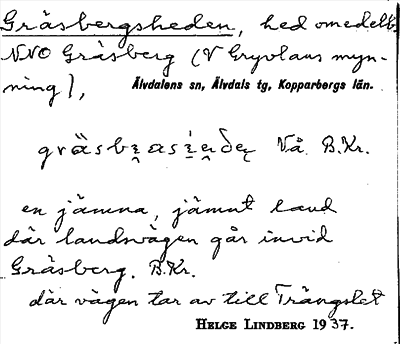 Gråsbergsheden, hed omedelb.
NNO Gråsberg (V Gryvlans myn-
ning), Älvdalens sn, Älvdals tg, Kopparbergs län.
Vå. B.Kr.
en jämna, jämnt land
där landsvägen går invid
Gråsberg. B.Kr.
där vägen tar av till Trängslet
HELGE LINDBERG 1937.